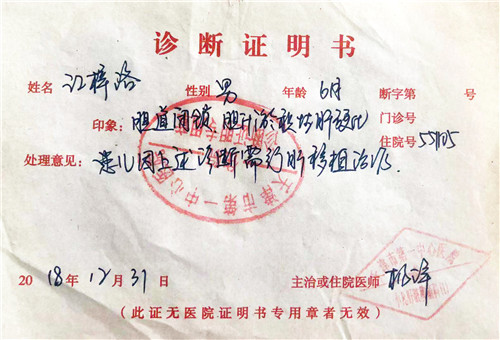 诊断证明书
姓名 江梓洛 性别 男 年龄 6月 断字第 号
印象: 胆道闭锁. 胆汁淤积性肝硬化 门诊号
住院号 55105
处理意见: 患儿因上述诊断需行肝移植治疗.
天津市第一中心医院
诊断证明专用章
2018年12月31日 主治或住院医师
(此证无医院证明书专用章者无效)